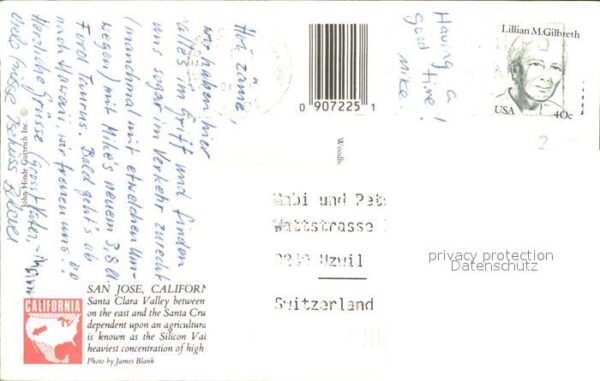 Hoi zäme,
wir haben hier
alles im Griff und finden
uns sogar im Verkehr zurecht
(manchmal mit etwelchen Um-
wegen) mit Mike's neuem 3,8 l
Ford Taurus. Bald geht's ab
nach Hawaii, wir freuen uns!!
Herzliche Grüsse (Gross-Vater,
Having a
good time!
Mike
Lillian M. Gilbreth
USA 40c
0 907225 1
John Hinde Curteich Inc. ©
Woodb
Gabi und Pete
Wattstrasse
Uzwil
Switzerland
privacy protection
Datenschutz
CALIFORNIA
SAN JOSE, CALIFORN
Santa Clara Valley between
on the east and the Santa Cru
dependent upon an agricultura
is known as the Silicon Val
heaviest concentration of high
Photo by James Blank